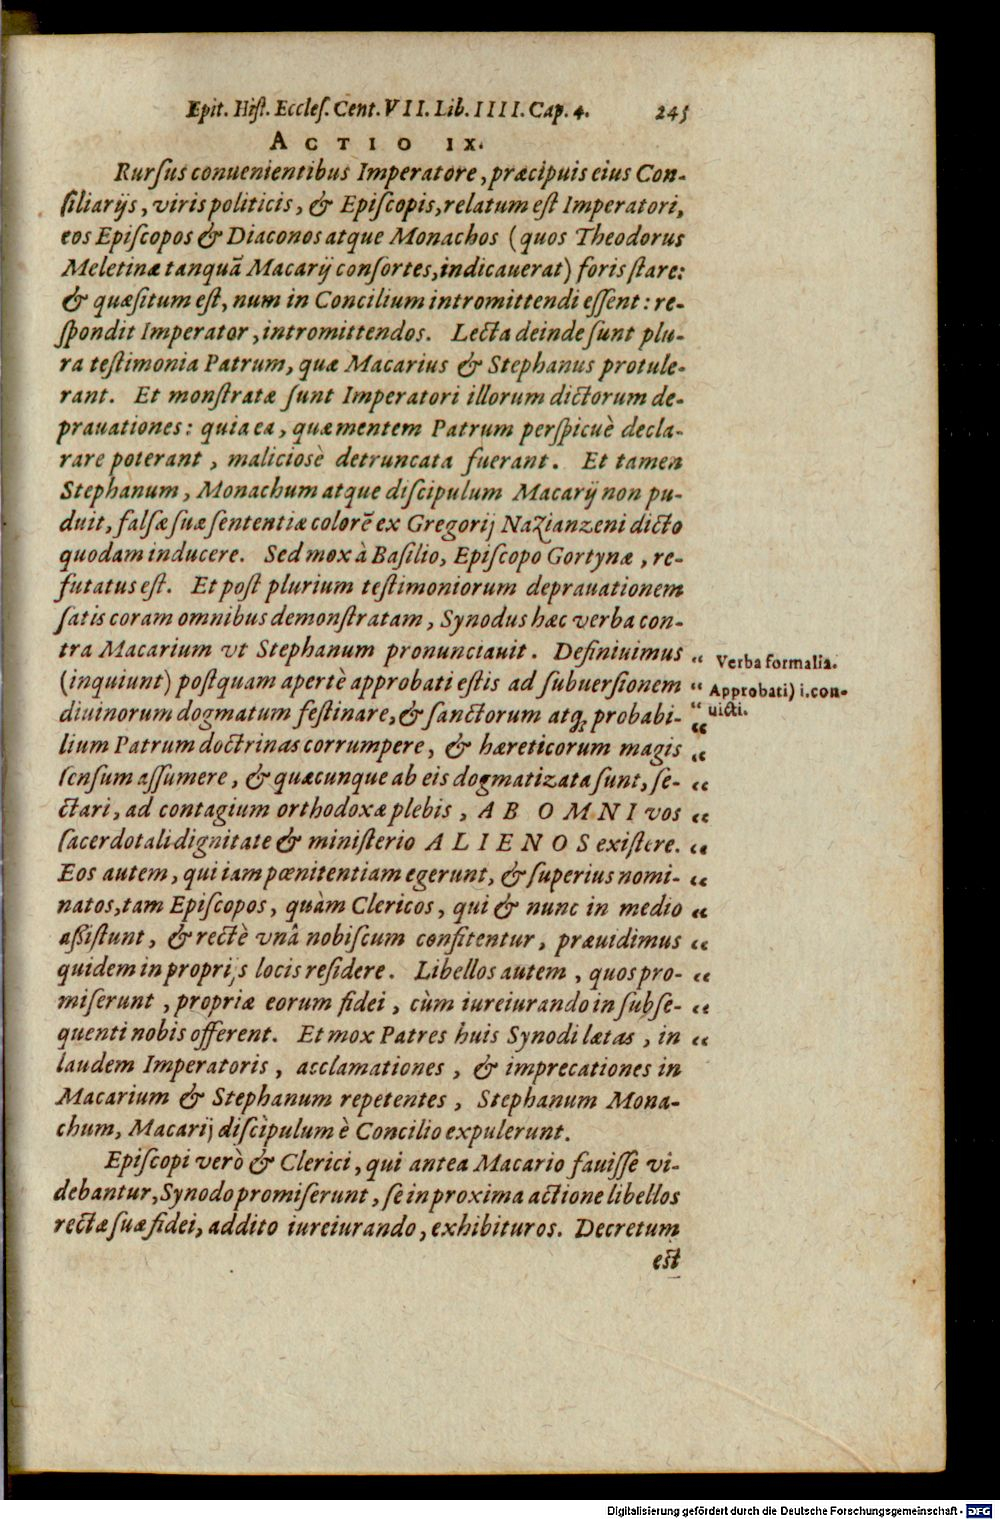 Epit. Hiſt. Eccleſ. Cent. VII. Lib. IIII. Cap. 4. 245
ACTIO IX.
Rurſus conuenientibus Imperatore, præcipuis eius Con-
ſiliarijs, viris politicis, & Epiſcopis, relatum eſt Imperatori,
eos Epiſcopos & Diaconos atque Monachos (quos Theodorus
Meletinæ tanquā Macarij conſortes, indicauerat) foris ſtare:
& quæſitum eſt, num in Concilium intromittendi eſſent: re-
ſpondit Imperator, intromittendos. Lecta deinde ſunt plu-
ra teſtimonia Patrum, quæ Macarius & Stephanus protule-
rant. Et monſtratæ ſunt Imperatori illorum dictorum de-
prauationes: quia ea, quæ mentem Patrum perſpicuè decla-
rare poterant, malicioſè detruncata fuerant. Et tamen
Stephanum, Monachum atque diſcipulum Macarij non pu-
duit, falſæ ſuæ ſententiæ colorē ex Gregorij Nazianzeni dicto
quodam inducere. Sed mox à Baſilio, Epiſcopo Gortynæ, re-
futatus eſt. Et poſt plurium teſtimoniorum deprauationem
ſatis coram omnibus demonſtratam, Synodus hæc verba con-
tra Macarium vt Stephanum pronunciauit. Definiuimus “ Verba formalia.
(inquiunt) poſtquam apertè approbati eſtis ad ſubuerſionem “ Approbati) i. con-
diuinorum dogmatum feſtinare, & ſanctorum atq; probabi- “ uicti.
lium Patrum doctrinas corrumpere, & hæreticorum magis “
ſenſum aſſumere, & quæcunque ab eis dogmatizata ſunt, ſe- “
ctari, ad contagium orthodoxæ plebis, AB OMNI vos “
ſacerdotali dignitate & miniſterio ALIENOS exiſtere. “
Eos autem, qui iam pœnitentiam egerunt, & ſuperius nomi- “
natos, tam Epiſcopos, quàm Clericos, qui & nunc in medio “
aßiſtunt, & rectè vnâ nobiſcum confitentur, præuidimus “
quidem in proprijs locis reſidere. Libellos autem, quos pro- “
miſerunt, propriæ eorum fidei, cùm iureiurando in ſubſe- “
quenti nobis offerent. Et mox Patres huis Synodi lætas, in “
laudem Imperatoris, acclamationes, & imprecationes in
Macarium & Stephanum repetentes, Stephanum Mona-
chum, Macarij diſcipulum è Concilio expulerunt.
Epiſcopi verò & Clerici, qui antea Macario fauiſſe vi-
debantur, Synodo promiſerunt, ſe in proxima actione libellos
rectæ ſuæ fidei, addito iureiurando, exhibituros. Decretum
eſt
Digitalisierung gefördert durch die Deutsche Forschungsgemeinschaft - DFG